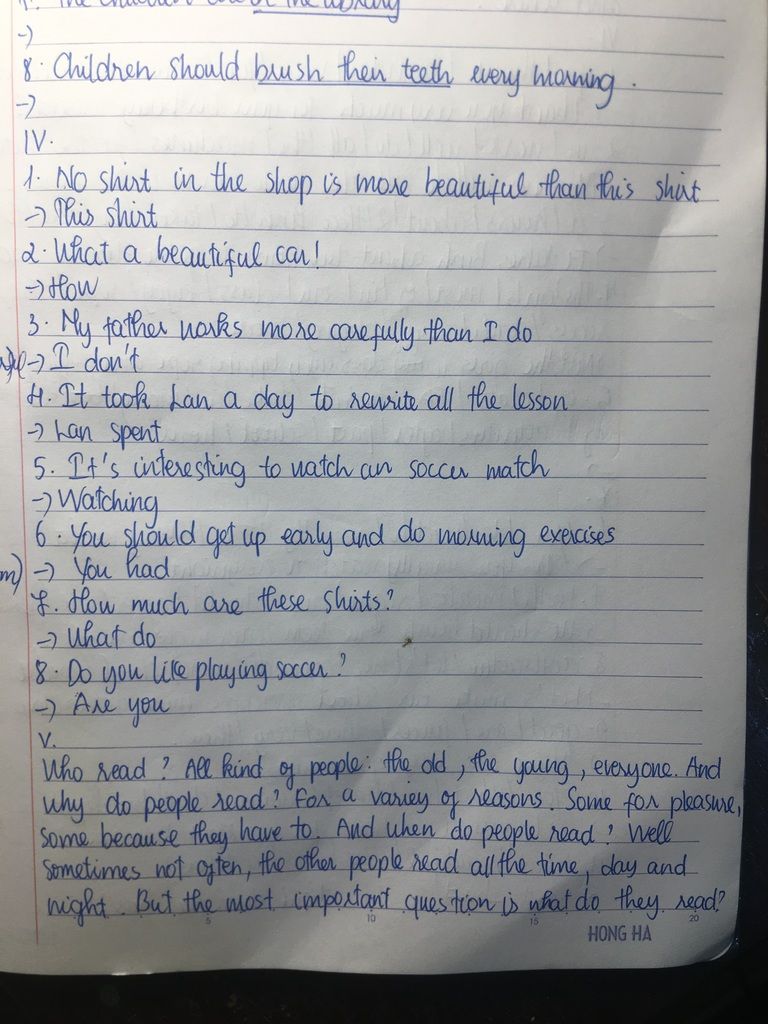 7. The children are at the library
->
8. Children should brush their teeth every morning.
->
IV.
1. No shirt in the shop is more beautiful than this shirt
-> This shirt
2. What a beautiful car!
-> How
3. My father works more carefully than I do
-> I don't
4. It took Lan a day to rewrite all the lesson
-> Lan spent
5. It's interesting to watch an soccer match
-> Watching
6. You should get up early and do morning exercises
m) -> You had
7. How much are these shirts?
-> What do
8. Do you like playing soccer?
-> Are you
V.
Who read? All kind of people: the old, the young, everyone. And
why do people read? For a variey of reasons. Some for pleasure,
some because they have to. And when do people read? Well
sometimes not often, the other people read all the time, day and
night. But the most important question is what do they read?
5 10 15 20
HONG HA